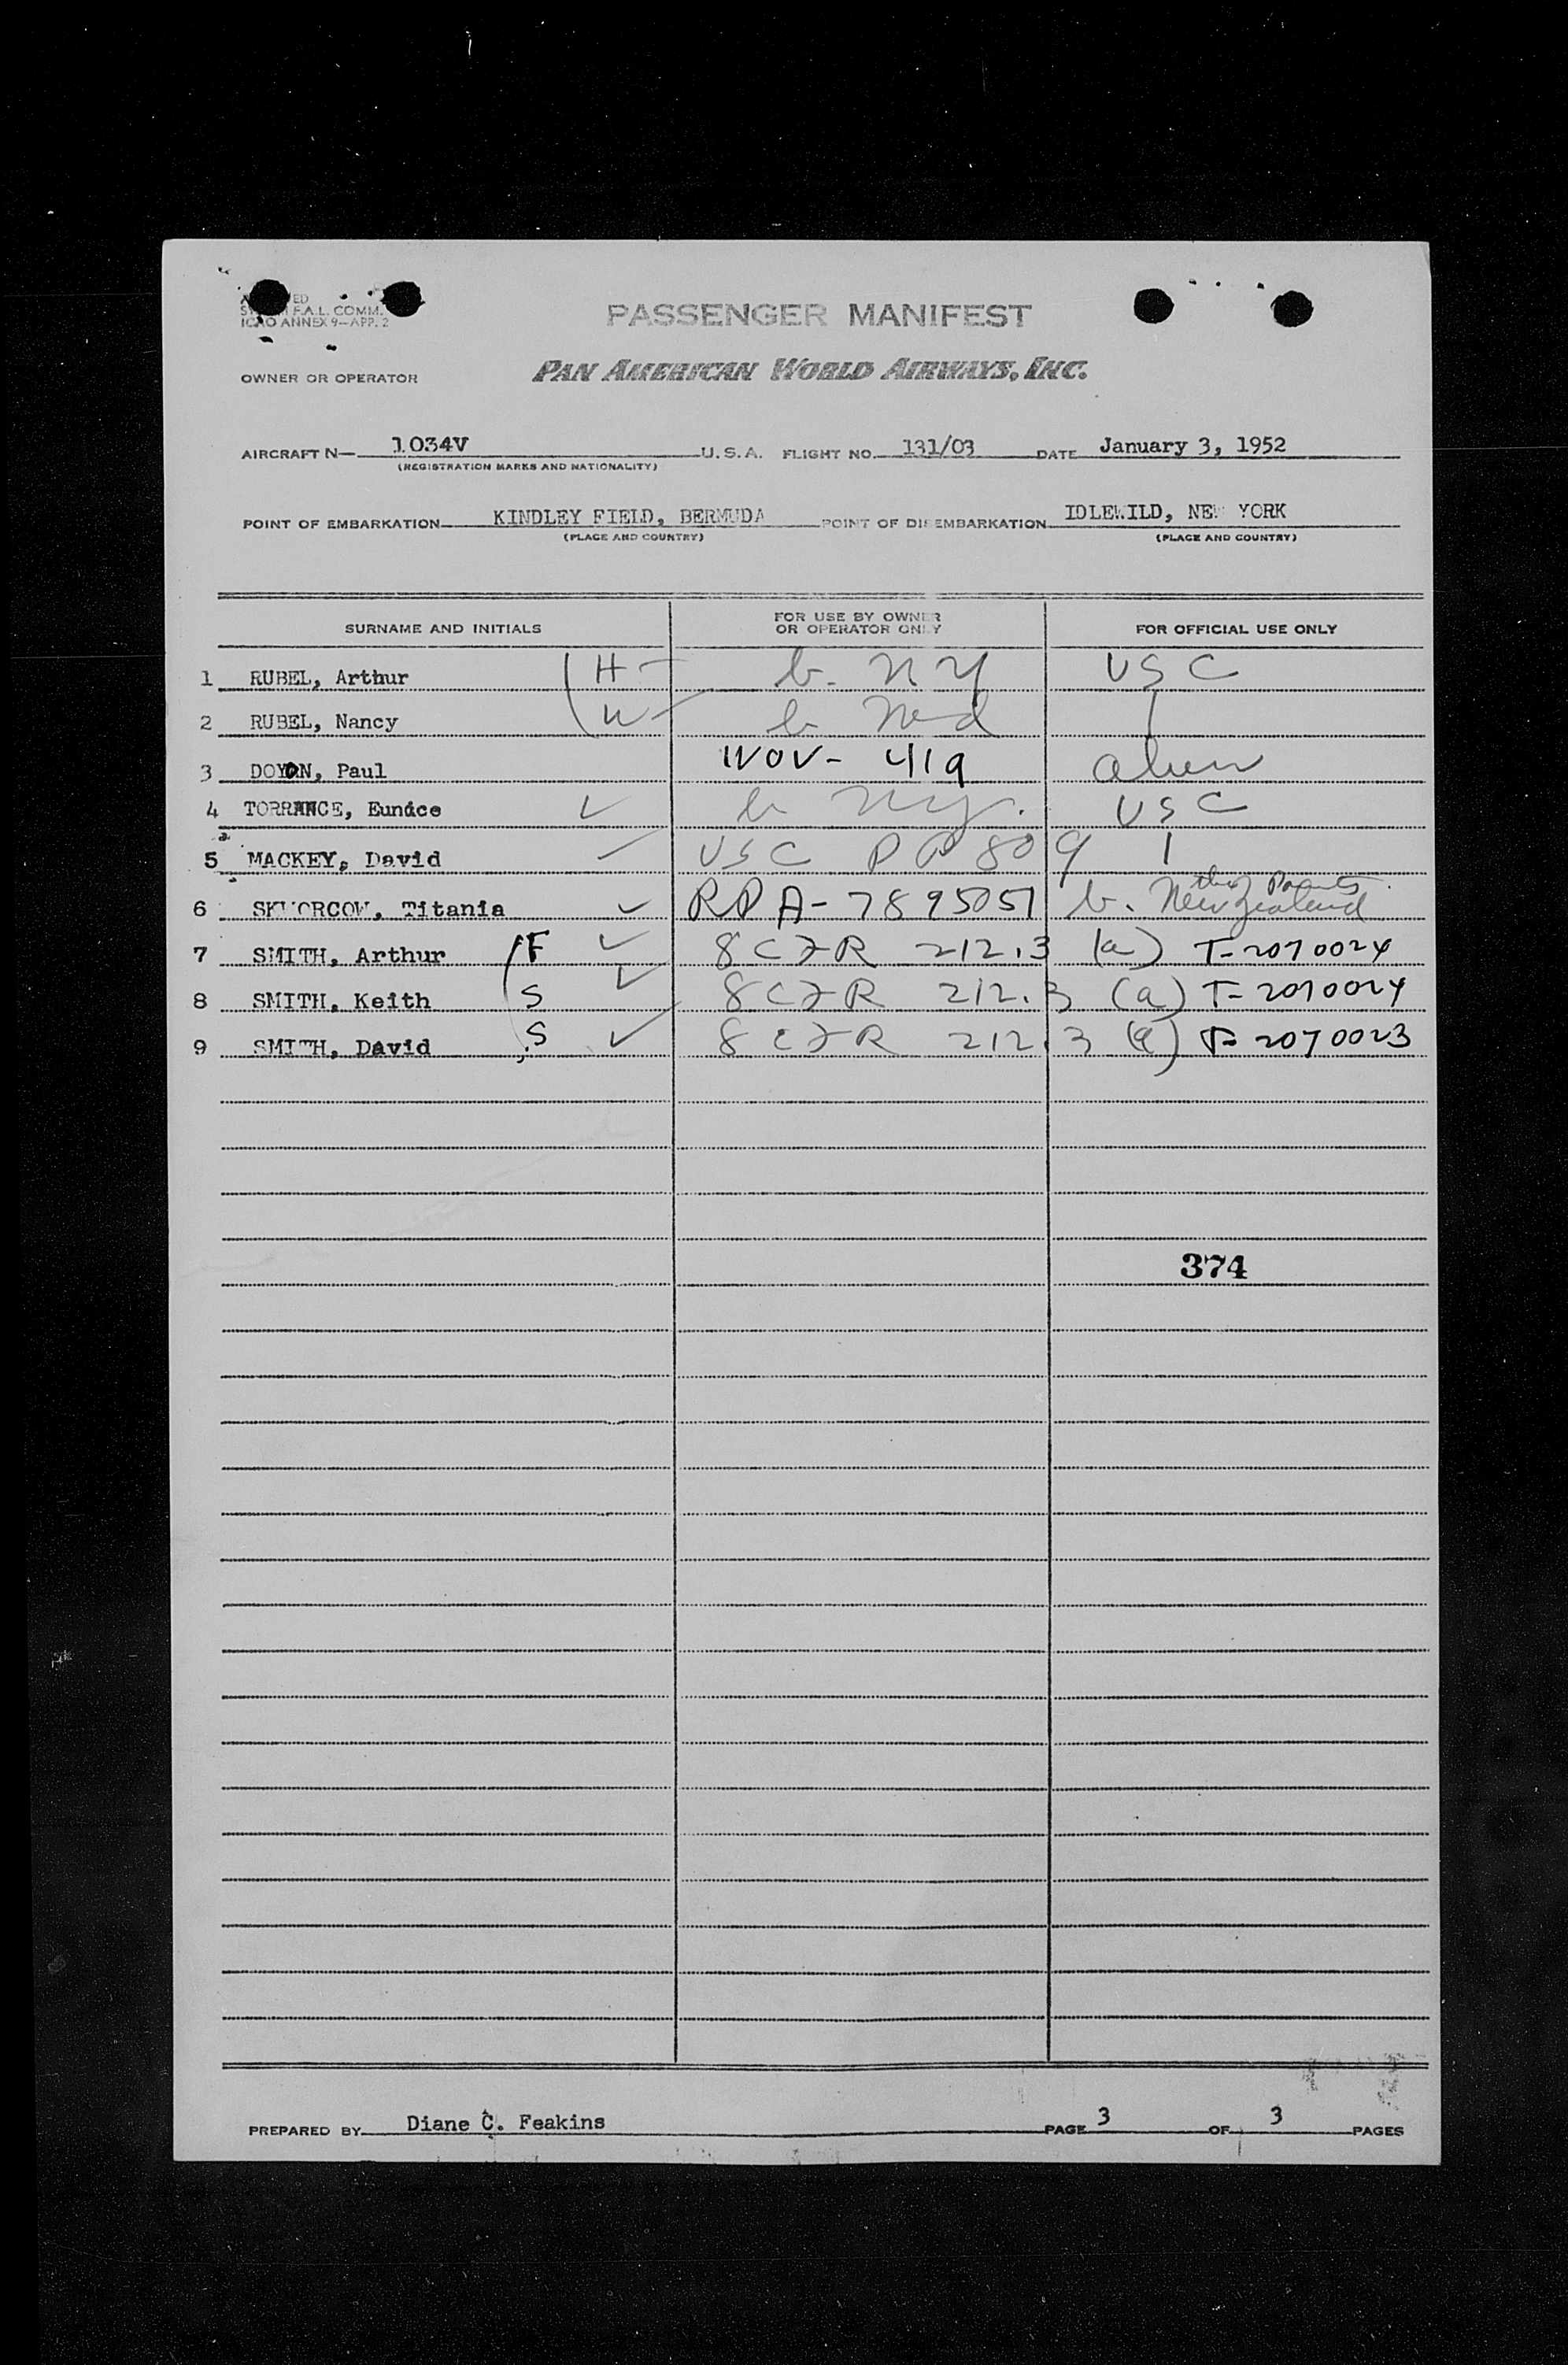 F.A.L. COMM.
ICAO ANNEX 9—APP. 2
PASSENGER MANIFEST
OWNER OR OPERATOR PAN AMERICAN WORLD AIRWAYS, INC.
AIRCRAFT N— 1034V U.S.A. FLIGHT NO. 131/03 DATE January 3, 1952
(REGISTRATION MARKS AND NATIONALITY)
POINT OF EMBARKATION KINDLEY FIELD, BERMUDA POINT OF DISEMBARKATION IDLEWILD, NEW YORK
(PLACE AND COUNTRY) (PLACE AND COUNTRY)
SURNAME AND INITIALS FOR USE BY OWNER OR OPERATOR ONLY FOR OFFICIAL USE ONLY
1 RUBEL, Arthur H b. NY USC
2 RUBEL, Nancy W b
3 DOYON, Paul WOV- 419 alien
4 TORRANCE, Eunice ✓ b NY. USC
5 MACKEY, David USC PP 809
6 SKVORCOW, Titania ✓ RP A-7895051 b. New Zealand
7 SMITH, Arthur F ✓ 8 CFR 212.3 (a) T-2070024
8 SMITH, Keith S ✓ 8 CFR 212.3 (a) T-2070024
9 SMITH, David S ✓ 8 CFR 212.3 (a) T-2070023
374
PREPARED BY Diane C. Feakins PAGE 3 OF 3 PAGES